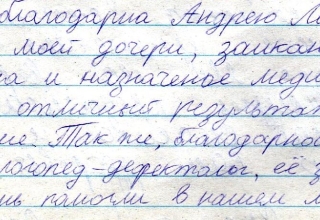 благодарна Андрею
моей дочери, заикан
и назначеное меди
отличный результа
Так же, благодарнос
логопед-дефектолог, её з
помогли в нашем